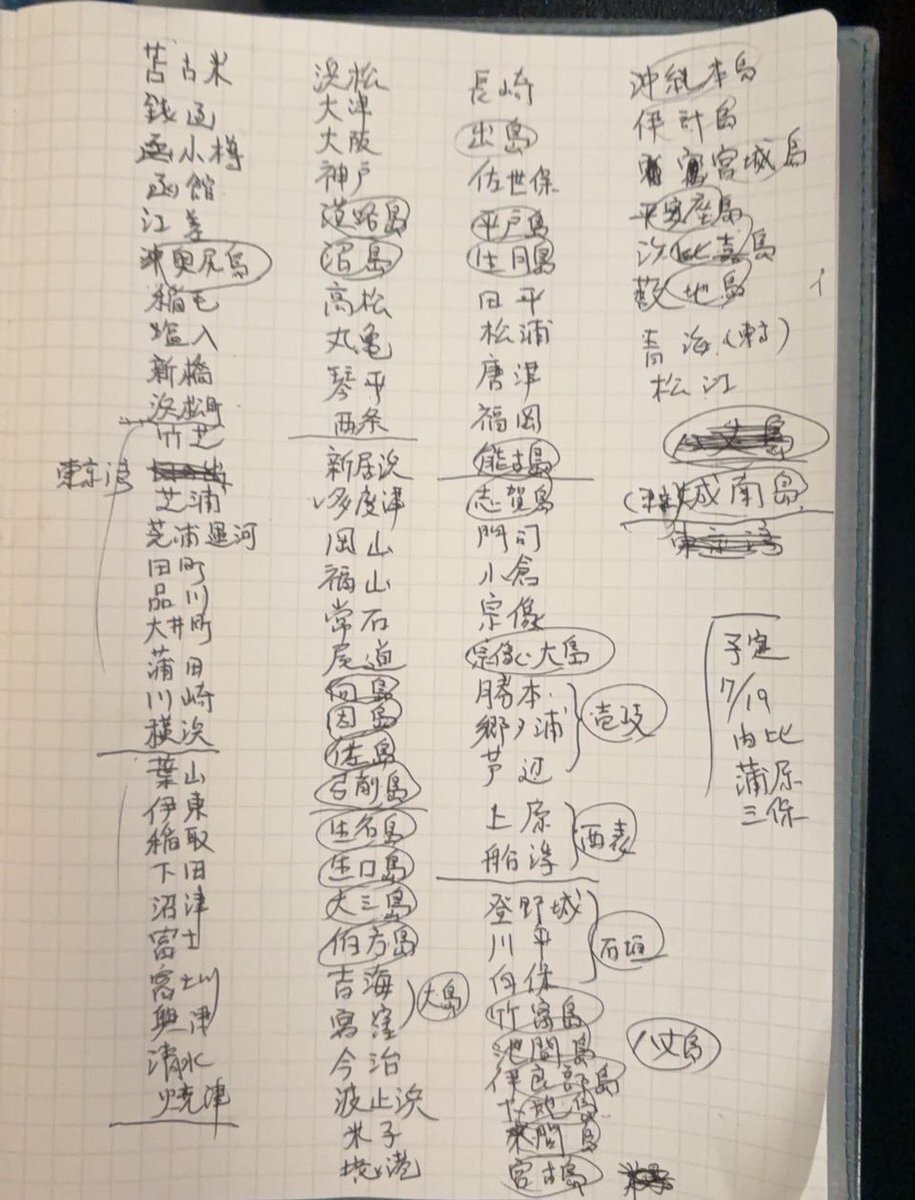 苫古米
銭函
小樽
函館
江差
奥尻島
稲毛
塩入
新橋
浜松町
竹芝
東京湾
芝浦
芝浦運河
田町
品川
大井町
蒲田
川崎
横浜
葉山
伊東
稲取
下田
沼津
富士
富士川
興津
清水
焼津
浜松
大津
大阪
神戸
沼島
高松
丸亀
琴平
西条
新居浜
多度津
岡山
福山
常石
尾道
向島
因島
佐島
弓削島
生名島
生口島
大三島
伯方島
吉海
宮窪
大島
今治
波止浜
米子
境港
長崎
出島
佐世保
平戸島
生月島
田平
松浦
唐津
福岡
能古島
志賀島
門司
小倉
宗像
宗像大島
勝本
郷ノ浦
芦辺
壱岐
上原
船浮
西表
登野城
川平
白保
石垣
竹富島
池間島
伊良部島
下地島
来間島
宮古島
沖縄本島
伊計島
宮城島
平安座島
浜比嘉島
藪地島
青海(東京)
松江
城南島
八丈島
予定
7/19
内比
蒲原
三保